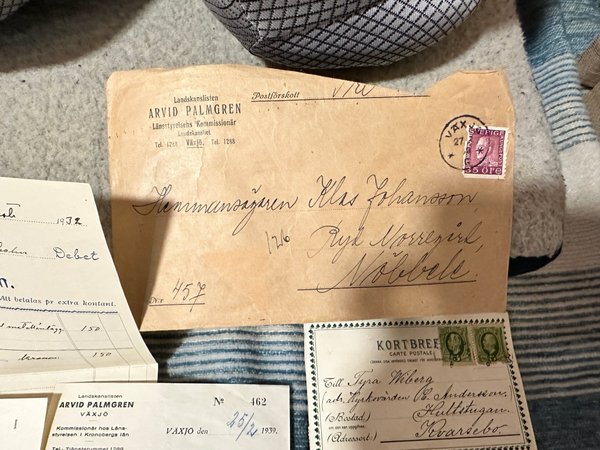 Landskanslisten
ARVID PALMGREN
Länsstyrelsens Kommissionär
Landskansliet
Tel. 1288 Växjö. Tel. 1288
Postförskott
VÄXJÖ
27
SVERIGE
35 ÖRE
Hemmansägaren Klas Johansson
126
Ryd Norregård,
Nöbbele.
N:r 457
1932
Debet
Att betalas pr extra kontant.
150
150
Landskanslisten
ARVID PALMGREN
VÄXJÖ
Kommissionär hos Läns-
styrelsen i Kronobergs län
Tel. Tjänsterummet 1288
№ 462
VÄXJÖ den 25/2 1939.
KORTBREF
CARTE POSTALE
Till Tyra Wiberg
adr. Kyrkvärden B. Andersson
(Bostad.) Hultstugan
(Adressort:) Kvarsebo.